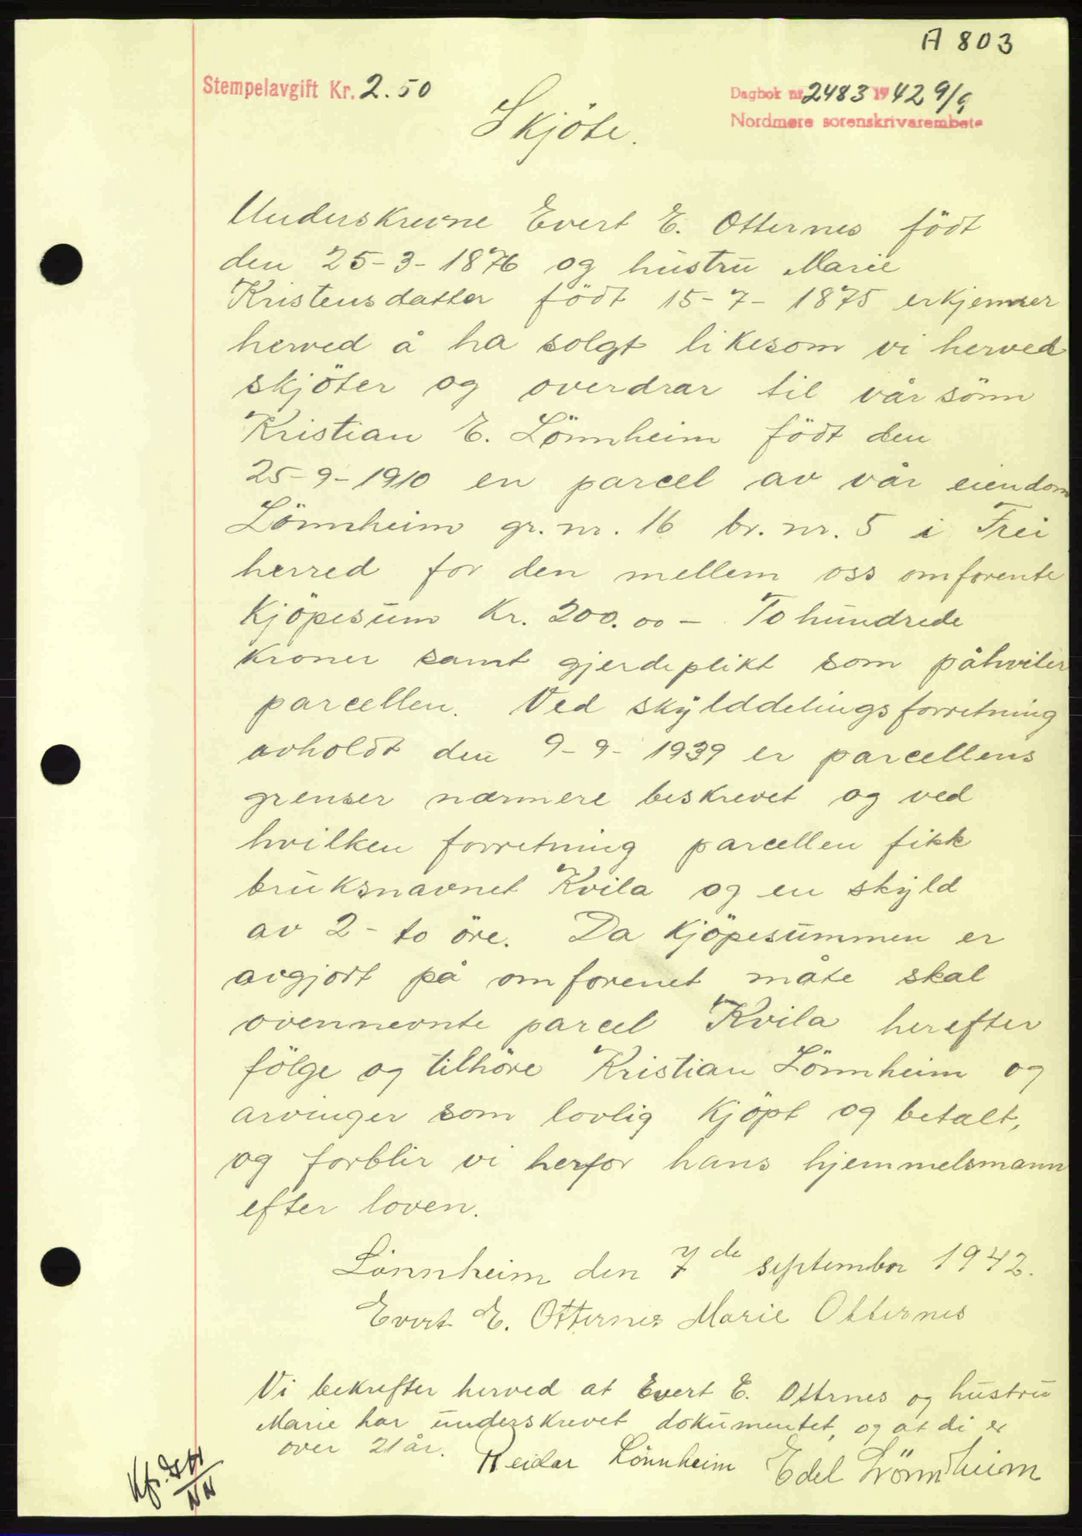 A 803
Stempelavgift Kr. 2.50
Dagbok nr. 2483 1942 9/9
Nordmøre sorenskrivarembete
Skjöte.
Underskrevne Evert E. Otternes födt
den 25-3-1876 og hustru Marie
Kristensdatter födt 15-7-1875 erkjenner
herved å ha solgt likesom vi herved
skjöter og overdrar til vår sönn
Kristian E. Lönnheim födt den
25-9-1910 en parcel av vår eiendom
Lönnheim gr. nr. 16 br. nr. 5 i Frei
herred for den mellem oss omforente
Kjöpesum Kr. 200.00 - To hundrede
Kroner samt gjerdeplikt som påhviler
parcellen. Ved skylddelingsforretning
avholdt den 9-9-1939 er parcellens
grenser nærmere beskrevet og ved
hvilken forretning parcellen fikk
bruksnavnet Kvila og en skyld
av 2- to öre. Da Kjöpesummen er
avgjort på omforenet måte skal
ovennevnte parcel Kvila herefter
fölge og tilhöre Kristian Lönnheim og
arvinger som lovlig Kjöpt og betalt,
og forblir vi herfor hans hjemmelsmann
efter loven.
Lönnheim den 7de september 1942.
Evert E. Otternes Marie Otternes
Vi bekrefter herved at Evert E. Ottrnes og hustru
Marie har underskrevet dokumentet, og at di er
over 21 år. Reidar Lönnheim Edel Lrönnheim
Kfr.
NN